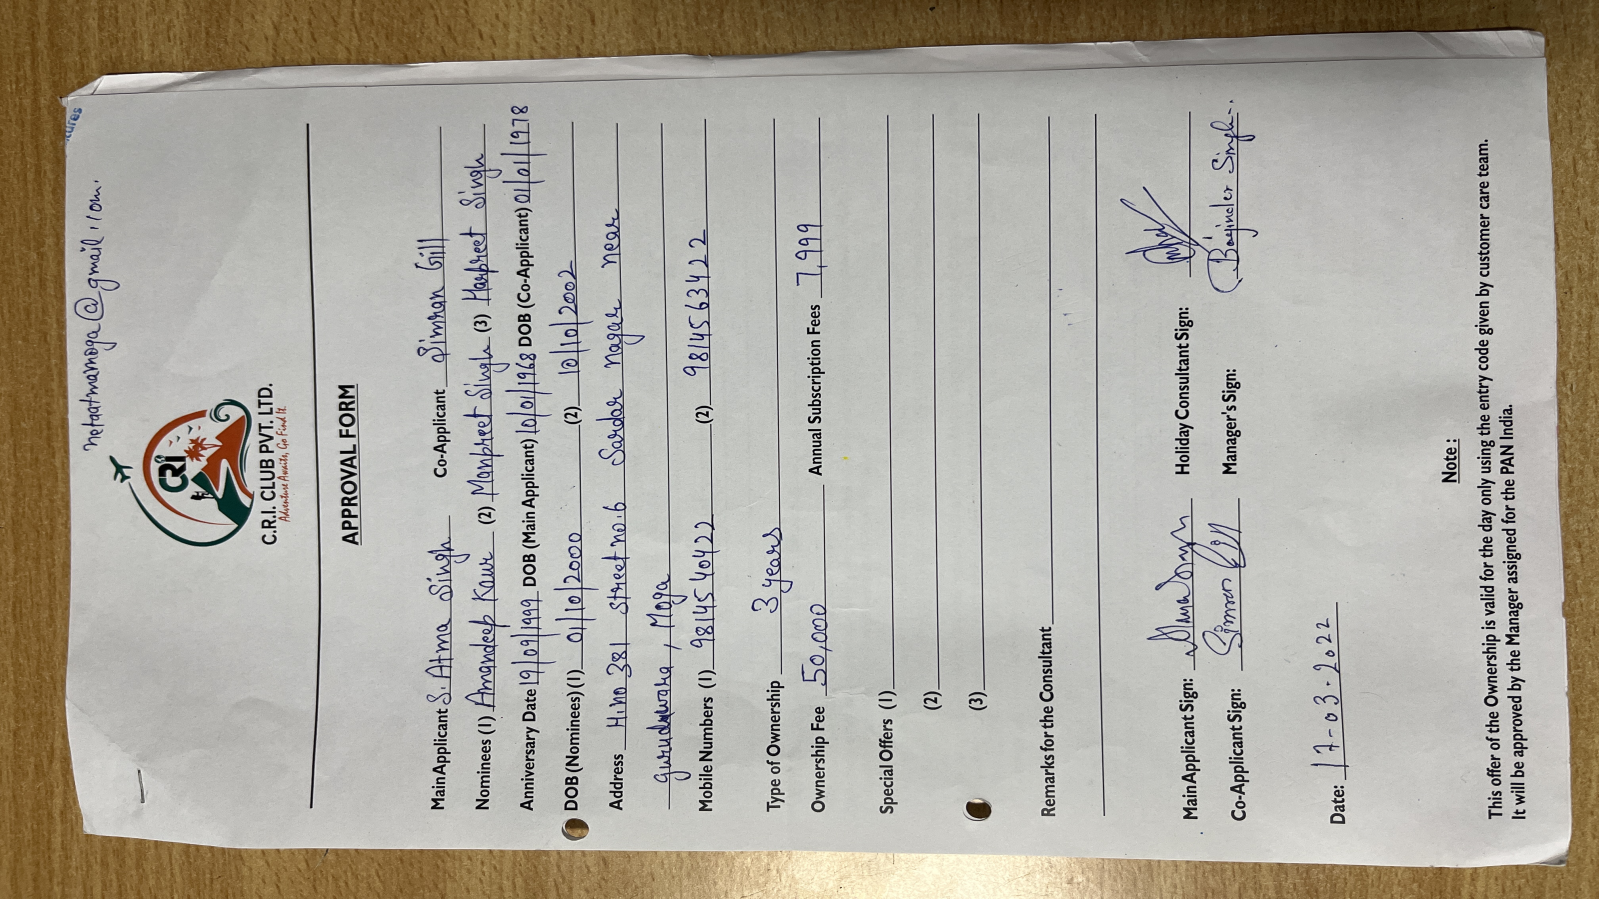 netaatmamoga@gmail.com.
CRI
C.R.I. CLUB PVT. LTD.
Adventure Awaits, Go Find It.
APPROVAL FORM
Main Applicant S. Atma Singh Co-Applicant Simran Gill
Nominees (1) Amandeep Kaur (2) Manpreet Singh (3) Harpreet Singh
Anniversary Date 19/09/1999 DOB (Main Applicant) 10/01/1968 DOB (Co-Applicant) 01/01/1978
DOB (Nominees) (1) 01/10/2000 (2) 10/10/2002
Address H.no 381 Street no.6 Sardar nagar near
gurudwara, Moga
Mobile Numbers (1) 9814540422 (2) 9814563422
Type of Ownership 3 years
Ownership Fee 50,000 Annual Subscription Fees 7,999
Special Offers (1)
(2)
(3)
Remarks for the Consultant
Main Applicant Sign: Holiday Consultant Sign:
Co-Applicant Sign: Simran Gill Manager's Sign: Singh
Date: 17-03-2022
Note :
This offer of the Ownership is valid for the day only using the entry code given by customer care team.
It will be approved by the Manager assigned for the PAN India.